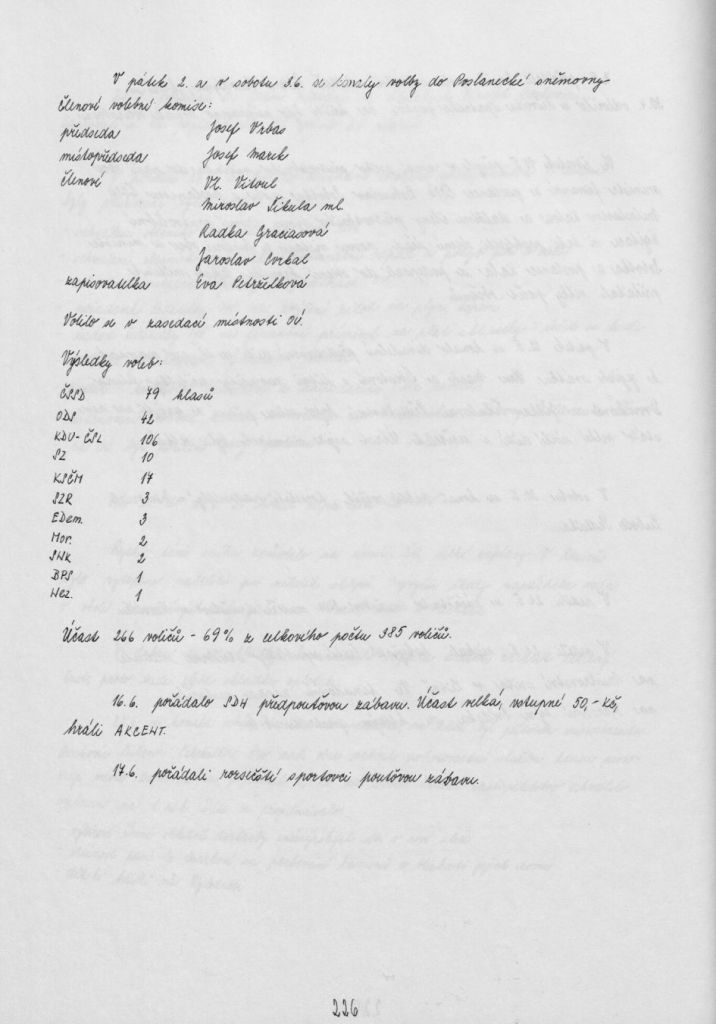 V pátek 2. a v sobotu 3.6. se konaly volby do Poslanecké sněmovny
členové volební komise:
předseda Josef Vrbas
místopředseda Josef Marek
členové Vl. Vitoul
Miroslav Sikula ml.
Radka Graciasová
Jaroslav Cvrkal
zapisovatelka Eva Petrželková
Volilo se v zasedací místnosti OÚ.
Výsledky voleb:
ČSSD 79 hlasů
ODS 42
KDU-ČSL 106
SZ 10
KSČM 17
SZR 3
EDem. 3
Mor. 2
SNK 2
BPS 1
Nez. 1
Účast 266 voličů - 69% z celkového počtu 385 voličů.
16.6. pořádalo SDH předpouťovou zábavu. Účast velká, vstupné 50,- Kč,
hráli AKCENT.
17.6. pořádali rozsečští sportovci pouťovou zábavu.
226